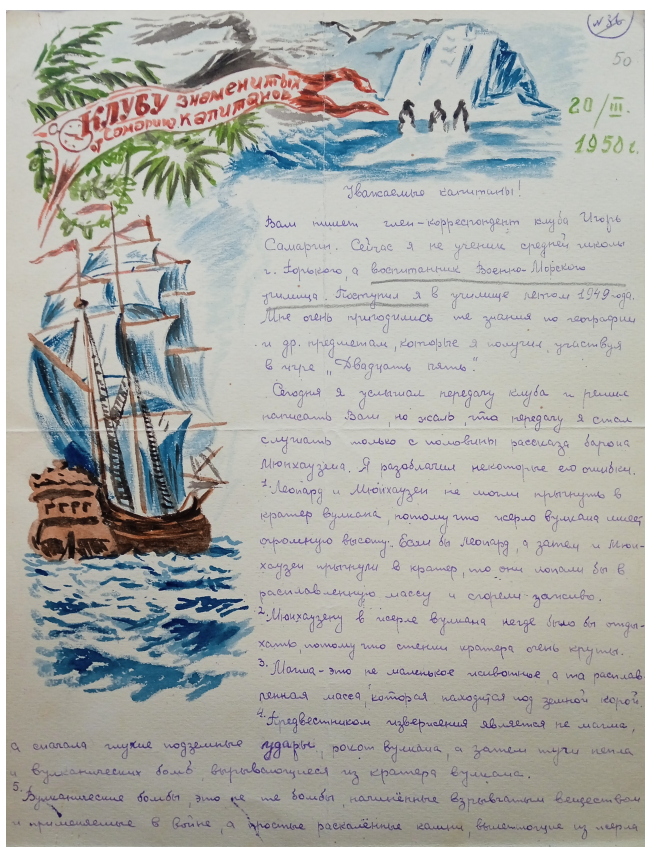 (№ 36)
50
Клубу знаменитых
от Самарина капитанов
20/III.
1950 г.
Уважаемые капитаны!
Вам пишет член-корреспондент клуба Игорь
Самаргин. Сейчас я не ученик средней школы
г. Горького, а воспитанник Военно-Морского
училища. Поступил я в училище летом 1949 года.
Мне очень пригодились те знания по географии
и др. предметам, которые я получил, участвуя
в игре „Двадцать пять".
Сегодня я услышал передачу клуба и решил
написать Вам, но жаль, что передачу я стал
слушать только с половины рассказа барона
Мюнхаузена. Я разоблачил некоторые его ошибки.
1. Леопард и Мюнхаузен не могли прыгнуть в
кратер вулкана, потому что жерло вулкана имеет
огромную высоту. Если бы леопард, а затем и Мюн-
хаузен прыгнули в кратер, то они попали бы в
расплавленную массу и сгорели заживо.
2. Мюнхаузену в жерле вулкана негде было бы отды-
хать, потому что стенки кратера очень круты.
3. Магма - это не маленькое животное, а та расплав-
ленная масса, которая находится под земной корой.
4. Предвестником извержения является не магма,
а сначала глухие подземные удары, рокот вулкана, а затем тучи пепла
и вулканических бомб, вырывающиеся из кратера вулкана.
5. Вулканические бомбы, это не те бомбы, начинённые взрывчатым веществом
и применяемые в войне, а простые раскалённые камни, вылетающие из жерла